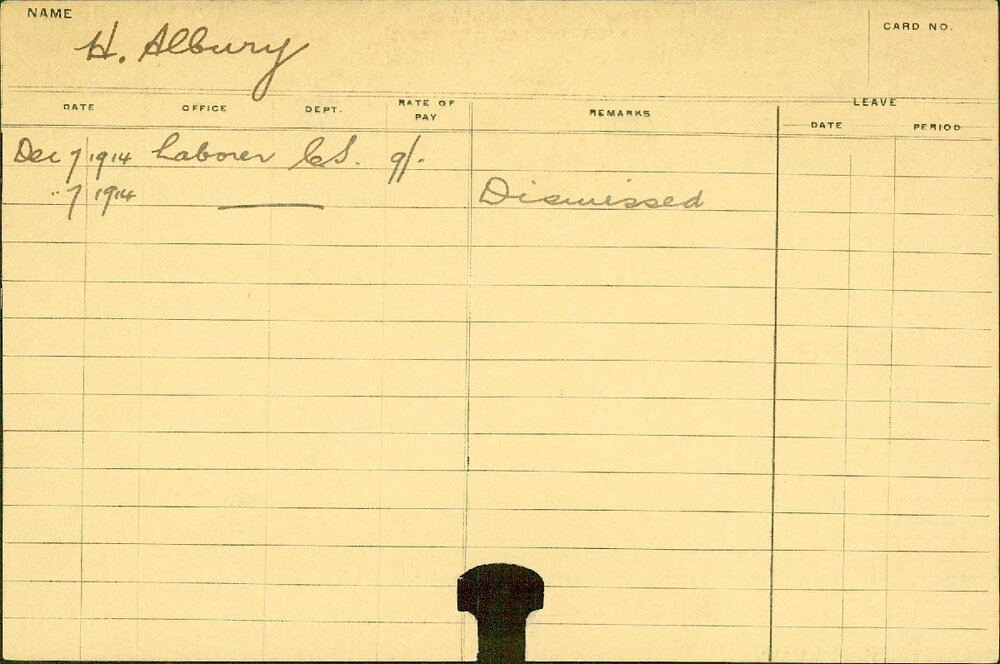 NAME
H. Albury
CARD NO.
DATE OFFICE DEPT. RATE OF PAY REMARKS LEAVE
DATE PERIOD
Dec 7 1914 Laborer C.S. 9/-
" 7 1914 —— Dismissed